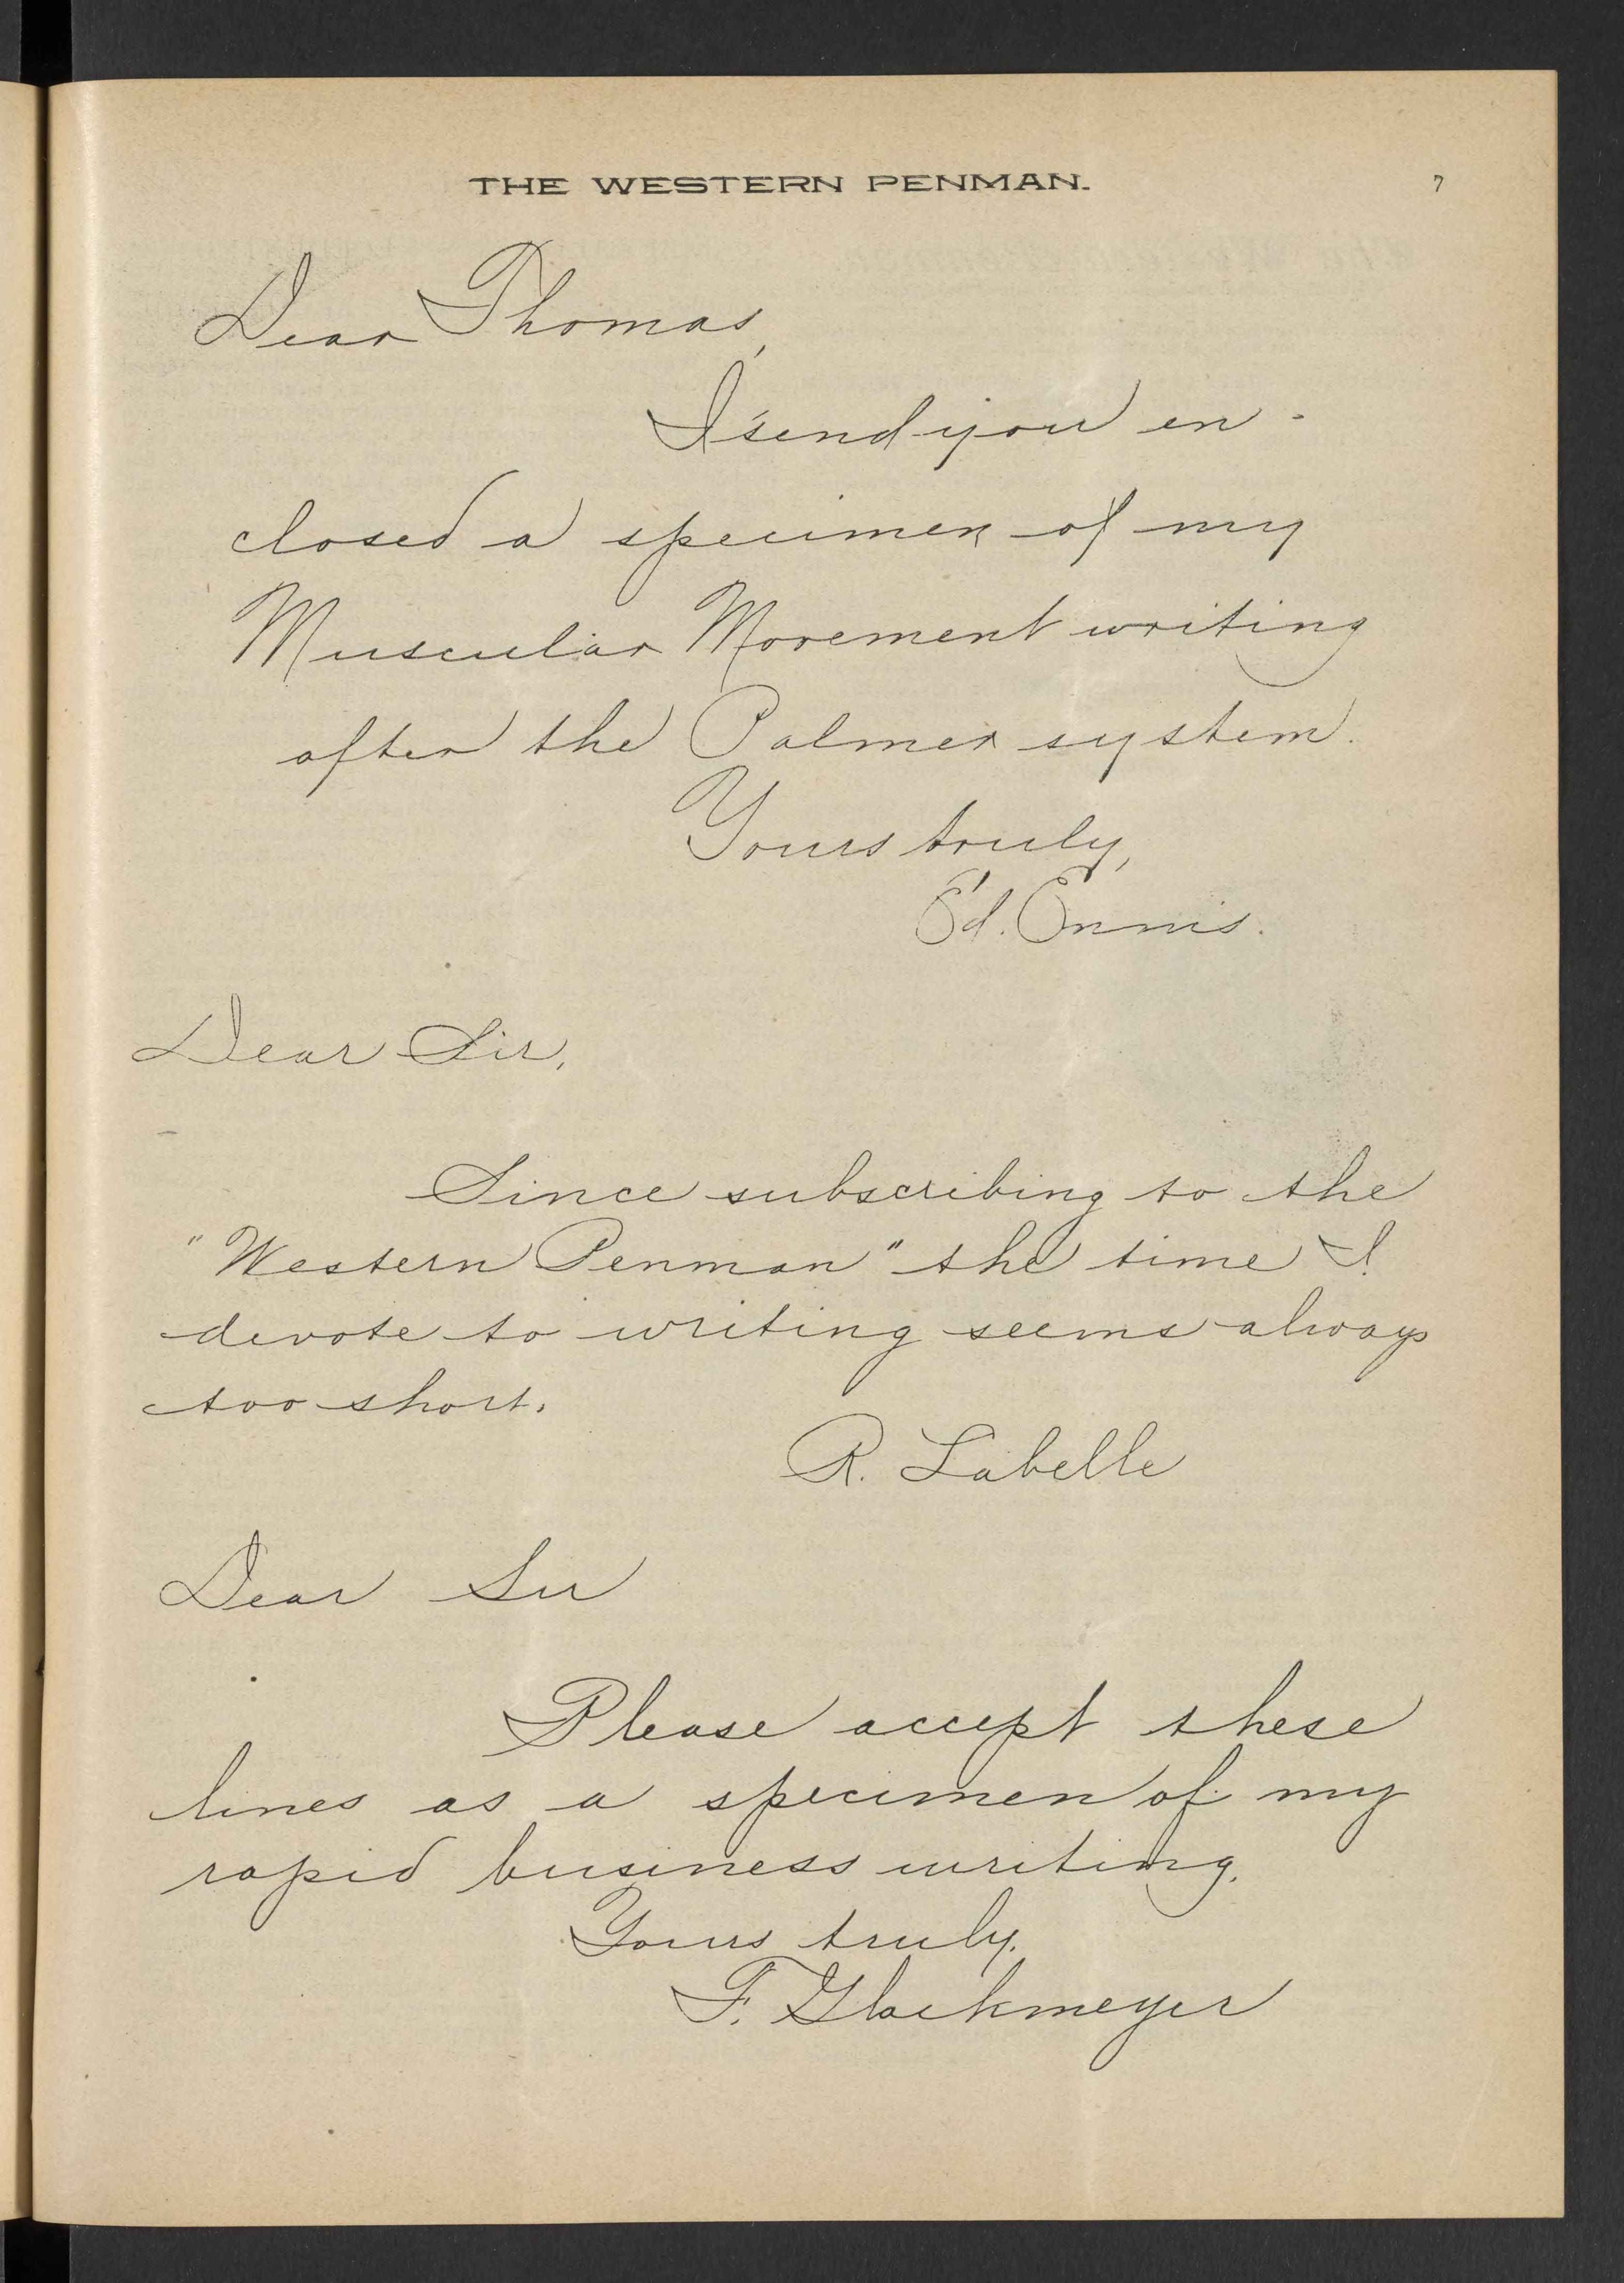 THE WESTERN PENMAN. 7
Dear Thomas,
I send you en-
closed a specimen of my
Muscular Movement writing
after the Palmer system.
Yours truly,
Ed. Ennis.
Dear Sir,
Since subscribing to the
"Western Penman" the time I
devote to writing seems always
too short.
R. Labelle
Dear Sir
Please accept these
lines as a specimen of my
rapid business writing.
Yours truly.
F. Glackmeyer